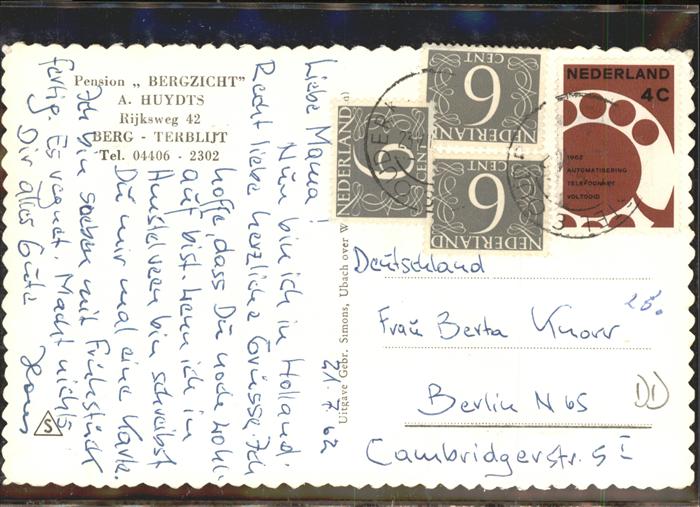 Pension „ BERGZICHT"
A. HUYDTS
Rijksweg 42
BERG - TERBLIJT
Tel. 04406 - 2302
21. 7. 62
Liebe Mama!
Nun bin ich in Holland.
Recht liebe herzliche Grüsse. Ich
hoffe, dass Du noch wohl-
auf bist. Wenn ich in
Amstelveen bin schreibst
Du mir mal eine Karte.
Ich bin soeben mit Frühstück
fertig. Es regnet. Macht nichts
Dir alles Gute
Hans
S
Uitgave Gebr. Simons, Ubach over W
n)
NEDERLAND
6
CENT
NEDERLAND
6
CENT
NEDERLAND
6
CENT
NEDERLAND
4 C
1962
AUTOMATISERING
TELEFOONNET
VOLTOOID
Deutschland
Frau Berta Knorr
Berlin N 65
Cambridgerstr. 5 I
DD